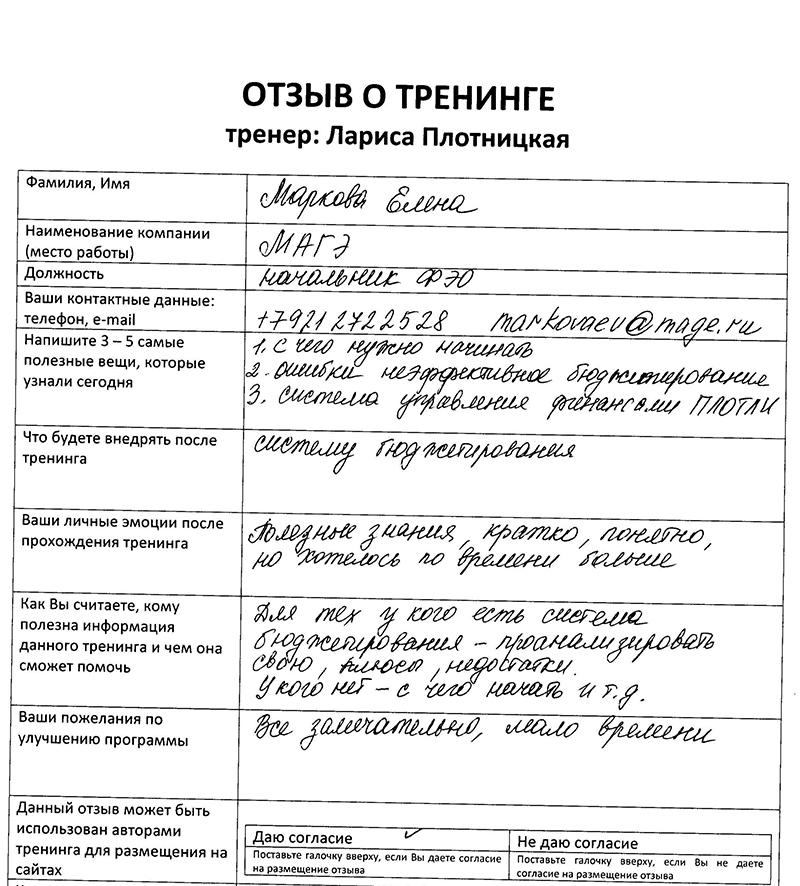 ОТЗЫВ О ТРЕНИНГЕ
тренер: Лариса Плотницкая
Фамилия, Имя
Маркова Елена
Наименование компании
(место работы)
МАГЭ
Должность
начальник ФЭО
Ваши контактные данные:
телефон, e-mail
+79212722528 markovaev@mage.ru
Напишите 3 – 5 самые
полезные вещи, которые
узнали сегодня
1. с чего нужно начинать
2. ошибки неэффективное бюджетирование
3. система управления финансами ПЛОТЛИ
Что будете внедрять после
тренинга
систему бюджетирования
Ваши личные эмоции после
прохождения тренинга
Полезные знания, кратко, понятно,
но хотелось по времени больше
Как Вы считаете, кому
полезна информация
данного тренинга и чем она
сможет помочь
Для тех у кого есть система
бюджетирования – проанализировать
свою, плюсы, недостатки.
У кого нет – с чего начать и т.д.
Ваши пожелания по
улучшению программы
Все замечательно, мало времени
Данный отзыв может быть
использован авторами
тренинга для размещения на
сайтах
Даю согласие ✓
Поставьте галочку вверху, если Вы даете согласие
на размещение отзыва
Не даю согласие
Поставьте галочку вверху, если Вы не даете
согласие на размещение отзыва